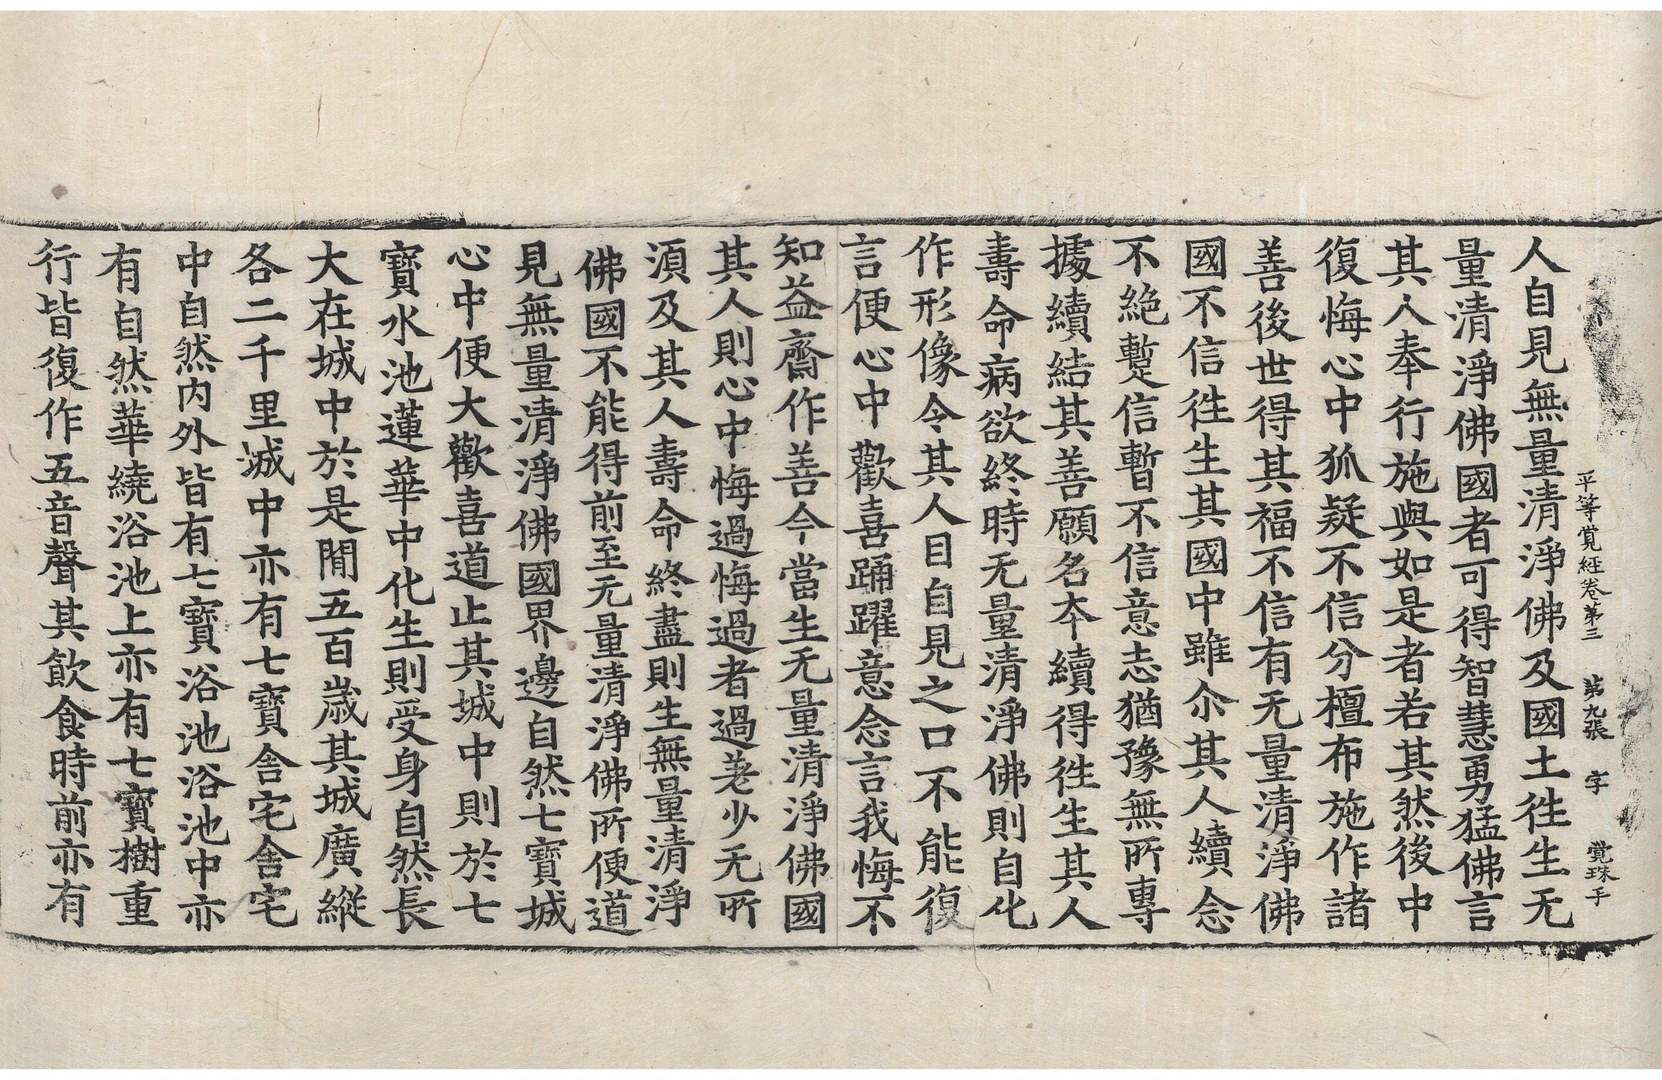 平等覺經卷第三　第九張　字　覺珠手
人自見無量清淨佛及國土往生无
量清淨佛國者可得智慧勇猛佛言
其人奉行施與如是者若其然後中
復悔心中狐疑不信分檀布施作諸
善後世得其福不信有无量清淨佛
國不信往生其國中雖尒其人續念
不絶蹔信暫不信意志猶豫無所專
據續結其善願名本續得往生其人
壽命病欲終時无量清淨佛則自化
作形像令其人目自見之口不能復
言便心中歡喜踊躍意念言我悔不
知益齋作善今當生无量清淨佛國
其人則心中悔過悔過者過差少无所
湏及其人壽命終盡則生無量清淨
佛國不能得前至无量清淨佛所便道
見無量清淨佛國界邊自然七寶城
心中便大歡喜道止其城中則於七
寶水池蓮華中化生則受身自然長
大在城中於是閒五百歲其城廣縱
各二千里城中亦有七寶舍宅舍宅
中自然内外皆有七寶浴池浴池中亦
有自然華繞浴池上亦有七寶樹重
行皆復作五音聲其飲食時前亦有